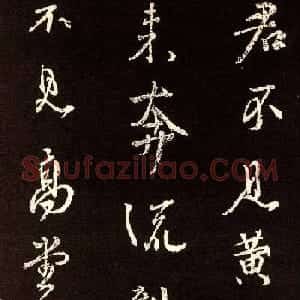 君不見黃
来奔流到
不見高堂
Shufaziliao.COM